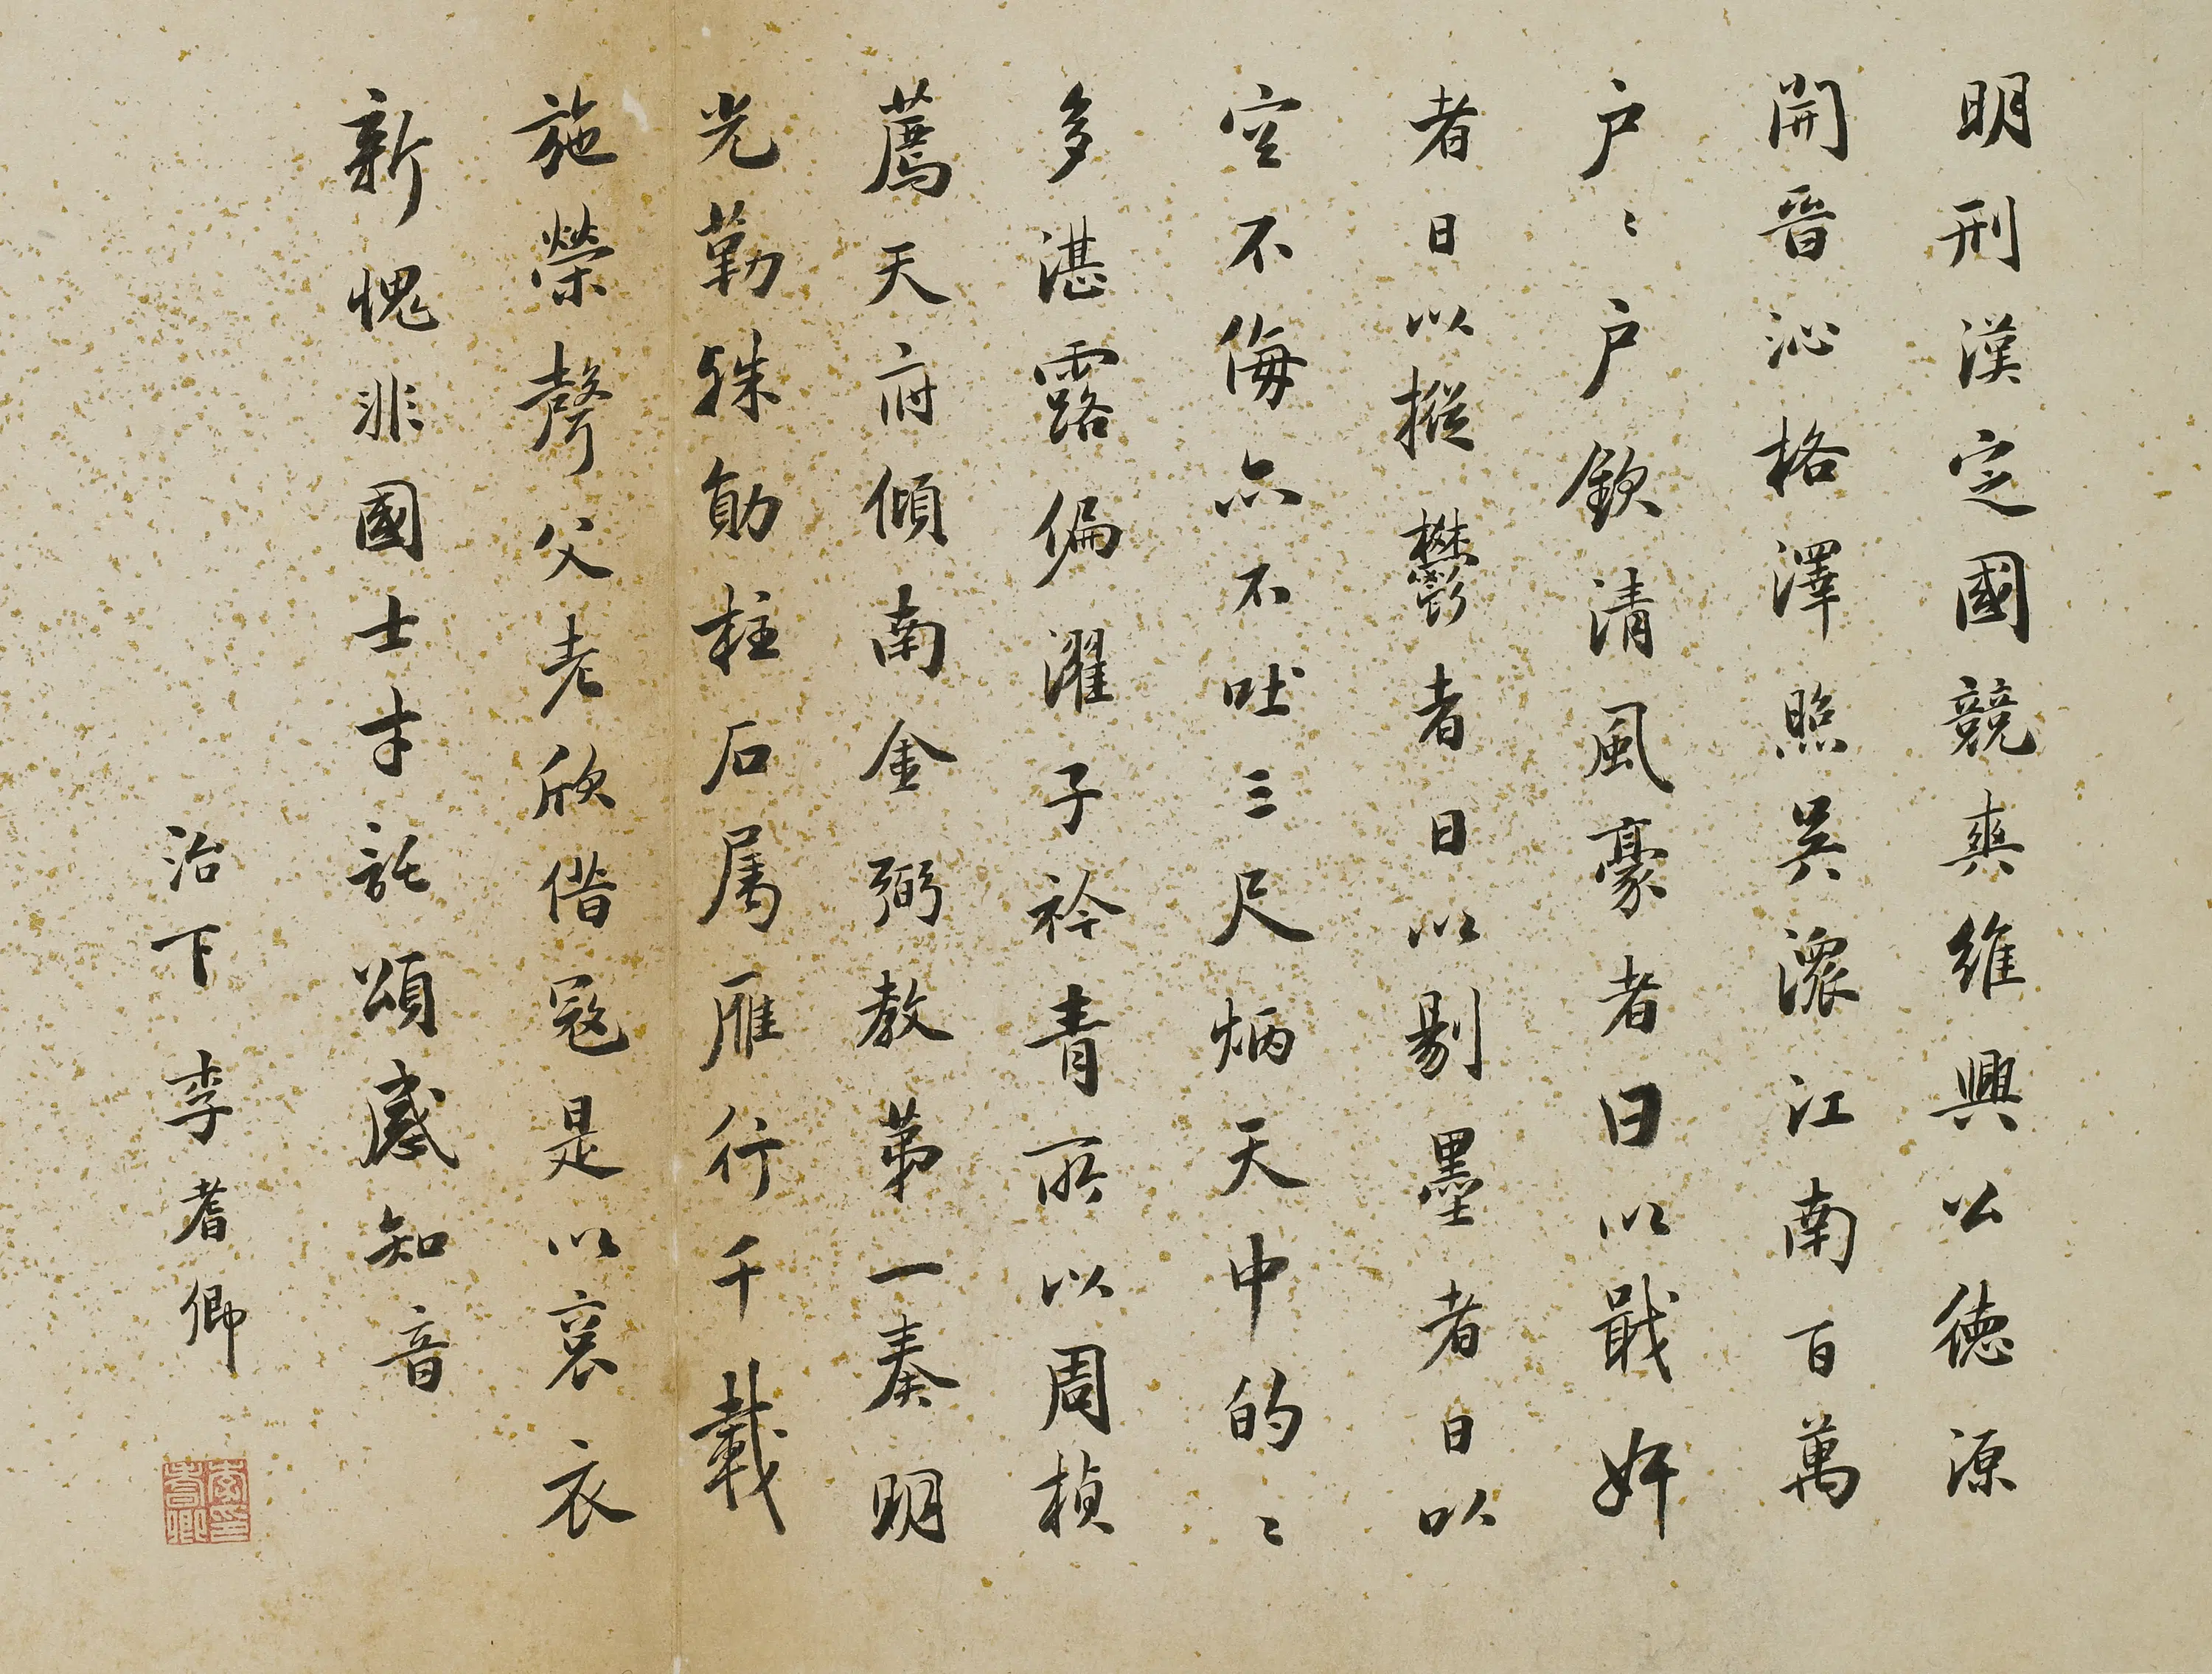 明刑漢定國競爽維興公德源
開晉沁格澤照吳濃江南百萬
户〻户欽清風豪者日以戢奸
者日以摧鬱者日以剔墨者日以
空不侮亦不吐三尺炳天中的〻
多湛露偏濯子衿青所以周楨
薦天府傾南金弼教第一奏明
光勒殊勛柱石属雁行千載
施榮聲父老欣借寇是以袞衣
新愧非國士才託頌感知音
治下李耆卿
李耆卿印